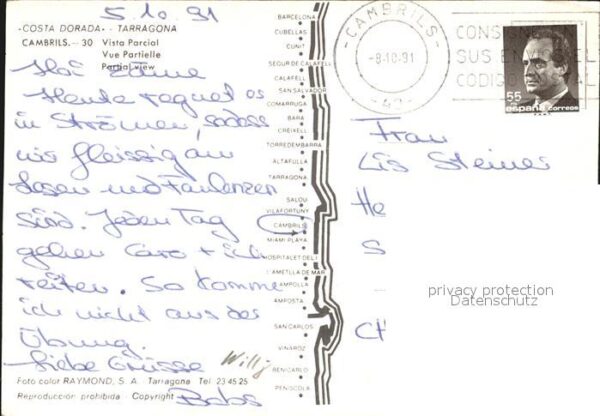 5.10.91
-COSTA DORADA- - TARRAGONA
CAMBRILS.- 30 Vista Parcial
Vue Partielle
Partial view
Hoi
Heute regnet es
in Strömen, sodass
wir fleissig am
Lesen und Faulenzen
sind. Jeden Tag
gehen Caro + ich
reiten. So komme
ich nicht aus der
Übung.
Liebe Grüsse
Babs
Willy
Foto color RAYMOND, S. A. Tarragona Tel. 23 45 25
Reproducción prohibida Copyright
BARCELONA
CUBELLAS
CUNIT
SEGUR DE CALAFELL
CALAFELL
SAN SALVADOR
COMARRUGA
BARA
CREIXELL
TORREDEMBARRA
ALTAFULLA
TARRAGONA
SALOU
VILAFORTUNY
CAMBRILS
MIAMI PLAYA
HOSPITALET DEL I.
AMETLLA DE MAR
AMPOLLA
AMPOSTA
SAN CARLOS
VINAROZ
BENICARLO
PEÑISCOLA
-CAMBRILS-
-8-10-91
CONS
SUS EN EL
CODIGO AL
55
españa correos
Frau
Lis Steiner
He
S
CH
privacy protection
Datenschutz